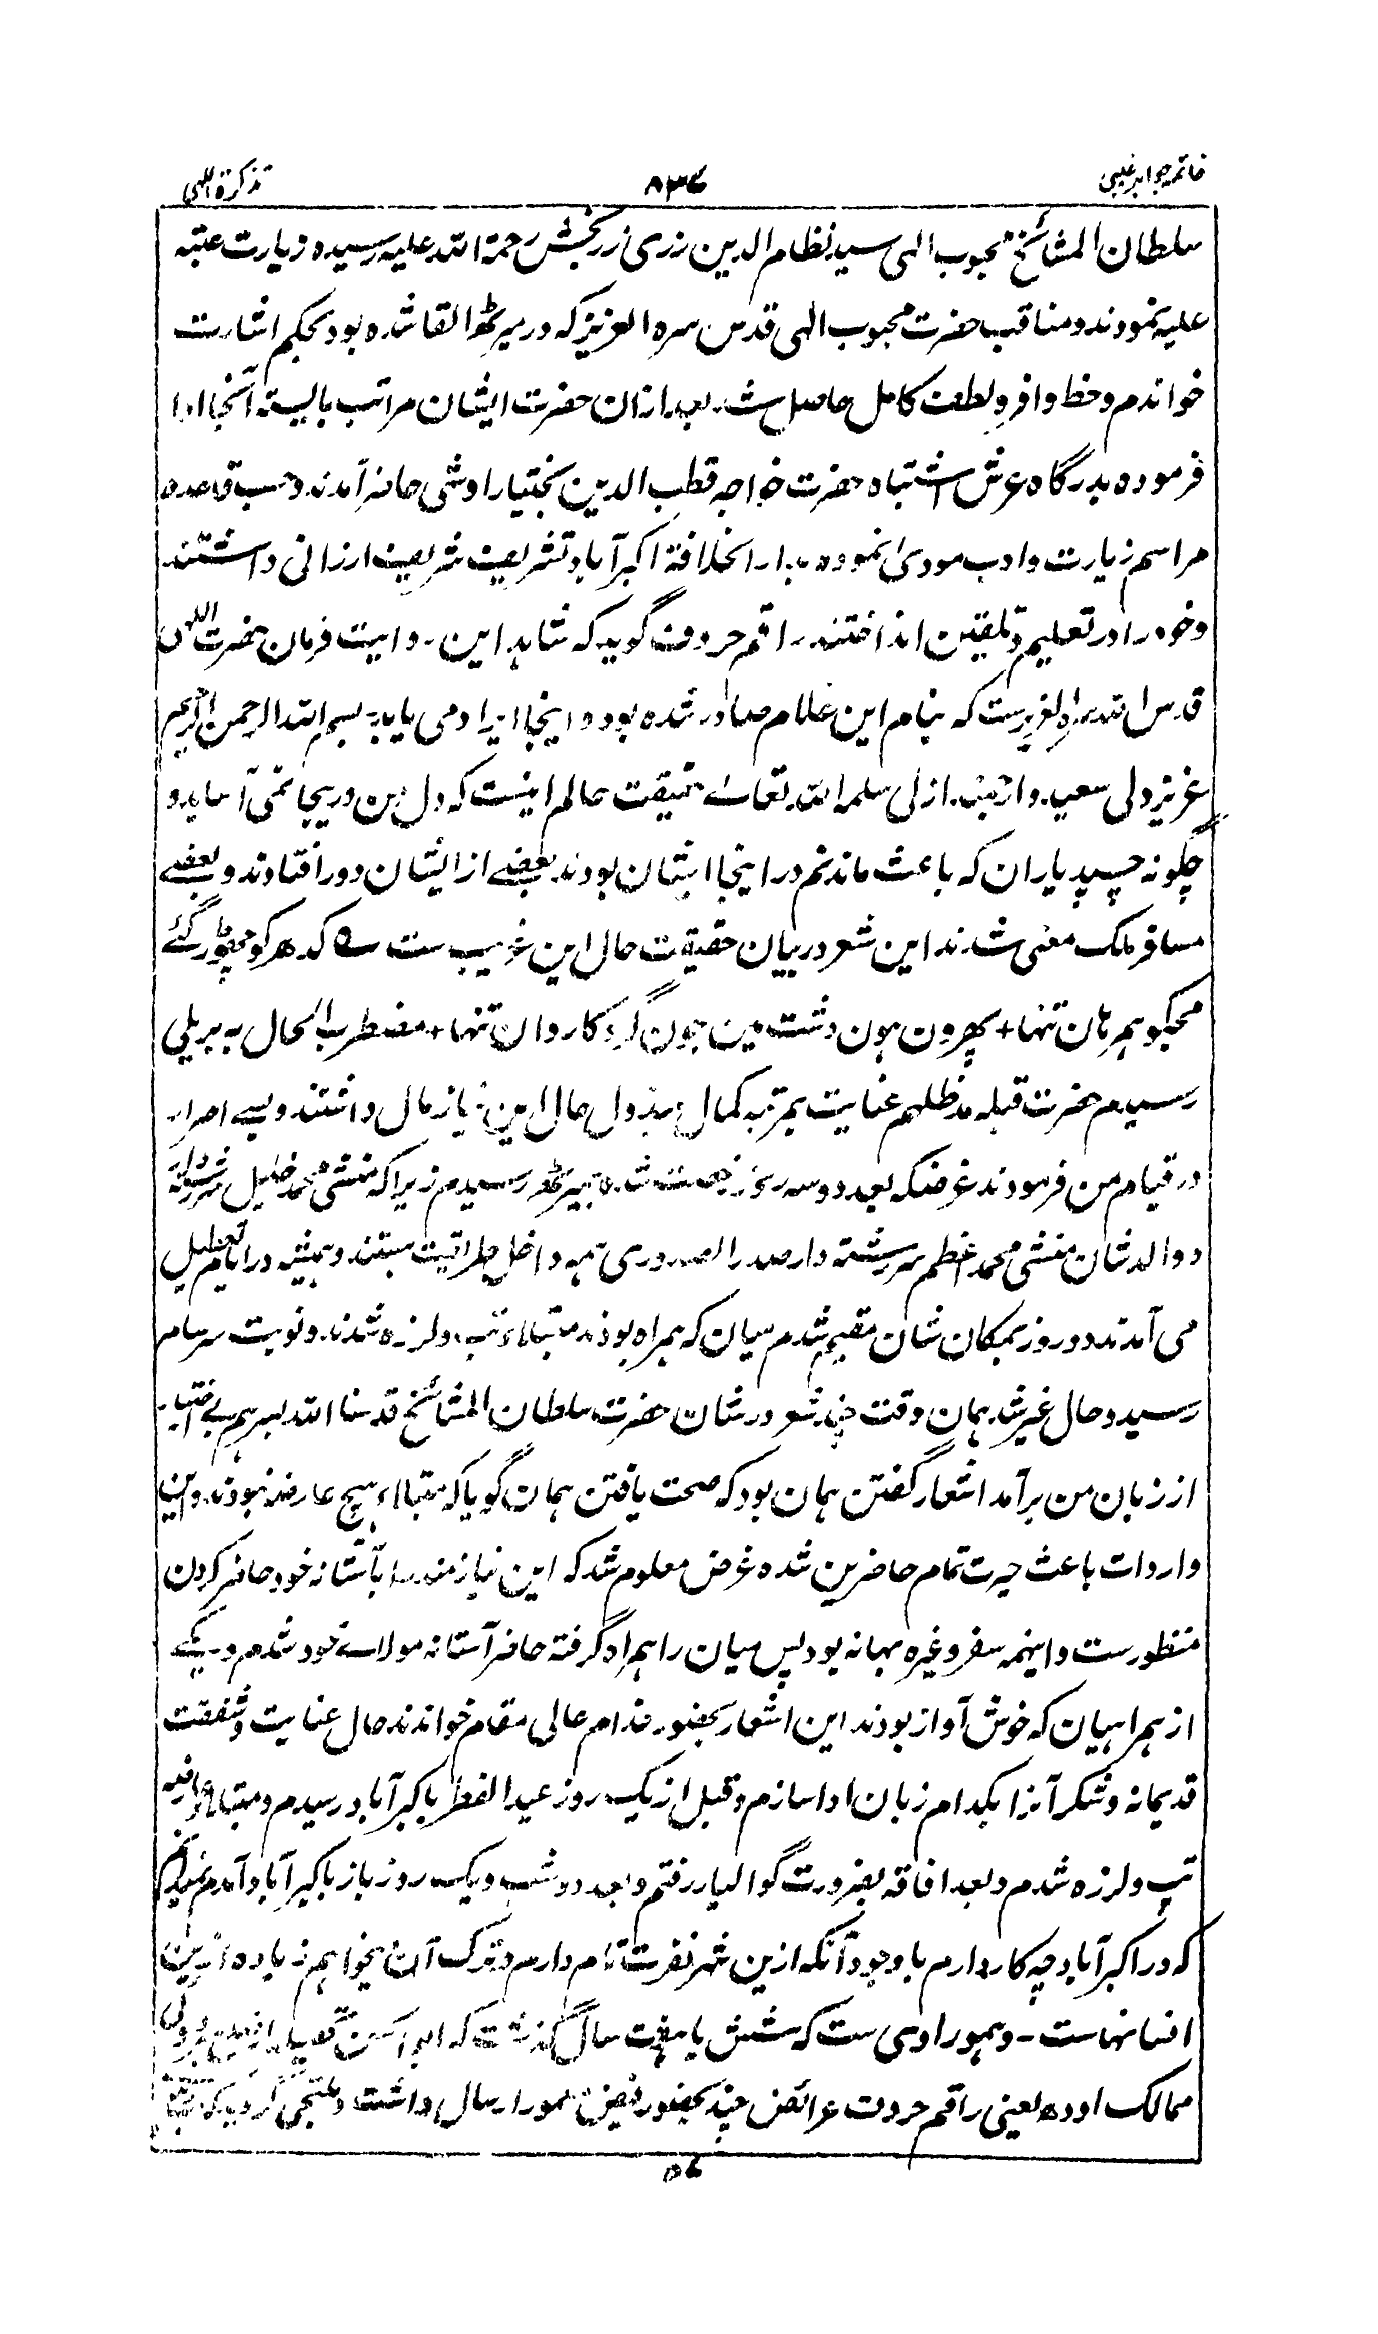 خاتمہ جواہر غیبی ۸۳۶ تذکرۃ اللہی
سلطان المشائخ محبوب الٰہی سید نظام الدین زری زر بخش رحمۃ اللہ علیہ رسیدہ زیارت عتبہ
علیہ نمودند و مناقب حضرت محبوب الٰہی قدس سرہ العزیز کہ در میرٹھ القا شدہ بود بحکم اشارت
خواندم و حظ وافر و لطف کامل حاصل شد بعد ازان حضرت ایشان مراتب بالیستہ آنجا ادا
فرمودہ بدرگاہ عرش اشتباہ حضرت خواجہ قطب الدین بختیار اوشی حاضر آمدند و حسب قاعدہ
مراسم زیارت و ادب مودیٰ نمودہ بدار الخلافۃ اکبرآباد تشریف شریف ارزانی داشتند
و خود را در تعلیم و تلقین انداختند راقم حروف گوید کہ شاہد این روایت فرمان حضرت
قدس اللہ سرہ العزیز ست کہ بنام این غلام صادر شدہ بود و اینجا ایراد می یابد بسم اللہ الرحمن الرحیم
عزیز دلی سعید و ارشد ازلی سلمہ اللہ تعالےٰ حقیقت حالم اینست کہ دل من در یجا نمی آساید و
چگونہ چسپد یاران کہ باعث ماندنم در اینجا ایشان بودند بعضے از ایشان دور افتادند و بعضے
مسافر ملک معنی شدند این شعر در بیان حقیقت حال این غریب ست ؎ کدھر کو چھوڑ گئے
مجکو ہمرہان تنہا + پھرون ہون دشت مین جون گرد کاروان تنہا + مضطرب الحال بہ بریلی
رسیدم حضرت قبلہ مد ظلہم عنایت بمرتبہ کمال مبذول حال این نیازمال داشتند و بسے اصرار
در قیام من فرمودند غرضکہ بعد دو سہ روز رخصت شدہ بمیرٹھ رسیدم زیرا کہ منشی محمد خلیل سررشتہ دار
و والد شان منشی محمد اعظم سررشتہ دار صدر الصدوری ہمہ داخل طریقت ہستند و ہمیشہ در ایام تعطیل
می آمدند دو روز بمکان شان مقیم شدم میان کہ ہمراہ بودند مبتلاء تپ و لرزہ شدند و نوبت سرسام
رسید و حال غیر شد ہمان وقت چند شعر در شان حضرت سلطان المشائخ قدسنا اللہ بسرہم بے اختیار
از زبان من برآمد اشعار گفتن ہمان بود کہ صحت یافتن ہمان گویا کہ مبتلاء ہیچ عارضہ نبودند و این
واردات باعث حیرت تمام حاضرین شدہ غرض معلوم شد کہ این نیازمند را بآستانہ خود حاضر کردن
منظورست و اینہمہ سفر وغیرہ بہانہ بود پس میان را ہمراہ گرفتہ حاضر آستانہ مولاے خود شدم و یکے
از ہمراہیان کہ خوش آواز بودند این اشعار بحضور خدام عالی مقام خواندند حال عنایت و شفقت
قدیمانہ و شکر آنرا بکدام زبان ادا سازم و قبل از یک روز عید الفطر باکبرآباد رسیدم و مبتلاء عارضہ
تپ و لرزہ شدم و بعد افاقہ بضرورت گوالیار رفتم و بعد دو شب و یک روز باز باکبرآباد آمدم
کہ در اکبرآباد چہ کار دارم باوجود آنکہ ازین شہر نفرت تام دارم و ترک آن نمیخواہم زیادہ ازین
افسانہاست ۔ و ہمو راوی ست کہ شش یا ہفت سال گذشت کہ
ممالک اودھ یعنی راقم حروف عرائض چند بحضور فیض معمور ارسال داشت و ملتجی گردید کہ
۵۶